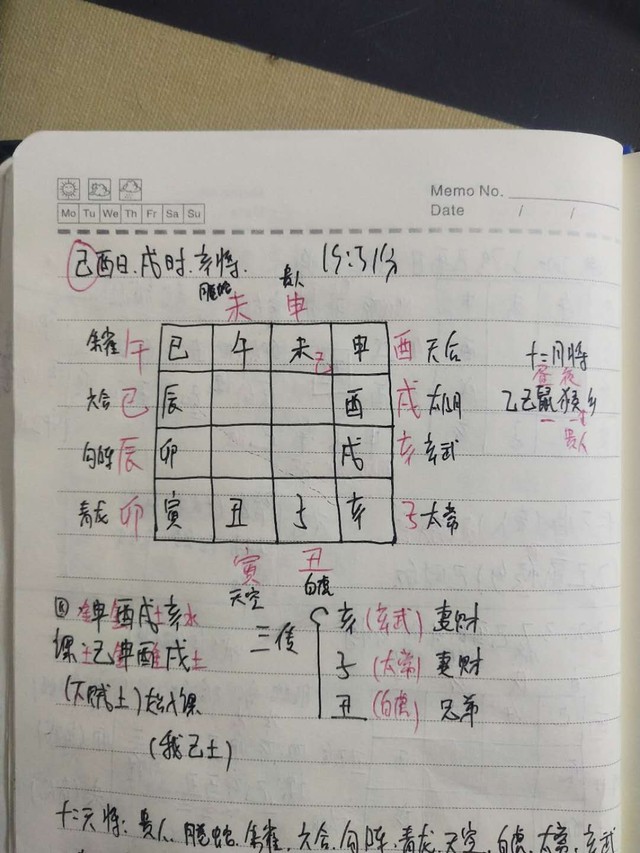 Memo No.
Mo Tu We Th Fr Sa Su
Date / /
己酉日.戌时.亥将.
螣蛇 贵人
未 申
朱雀 午 巳 午 未 己 申 酉 天后
十二月将
昼 夜
六合 巳 辰 酉 戌 太阴
乙己鼠猴乡
贵人
勾陈 辰 卯 戌 亥 玄武
青龙 卯 寅 丑 子 亥 子 太常
寅 丑
天空 白虎
四 金申 金酉 戌土 亥水
课 土己 金申 酉金 戌土
(不贼土)
(我己土)
三传
亥 (玄武) 妻财
子 (太常) 妻财
丑 (白虎) 兄弟
十二天将: 贵人.螣蛇.朱雀.六合.勾陈.青龙.天空.白虎.太常.玄武